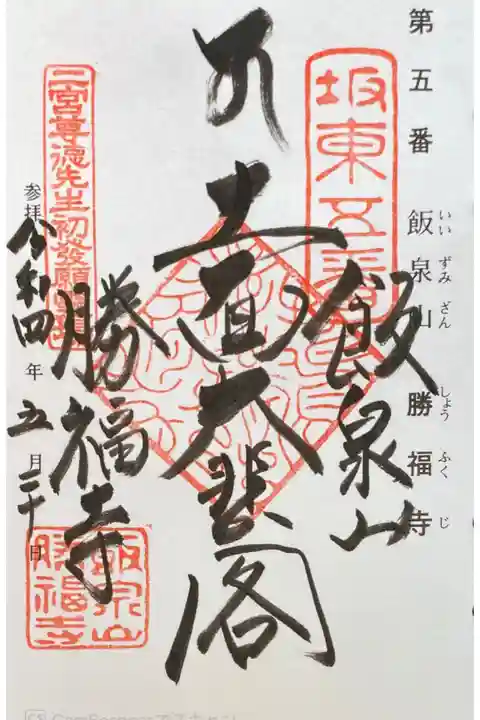 第五番 飯泉山 勝福寺
いいずみざん しょうふくじ
坂東五番
飯泉山
十一面大悲閣
勝福寺
二宮尊徳先生初發願
参拝 令和四年五月三十日
飯泉山勝福寺